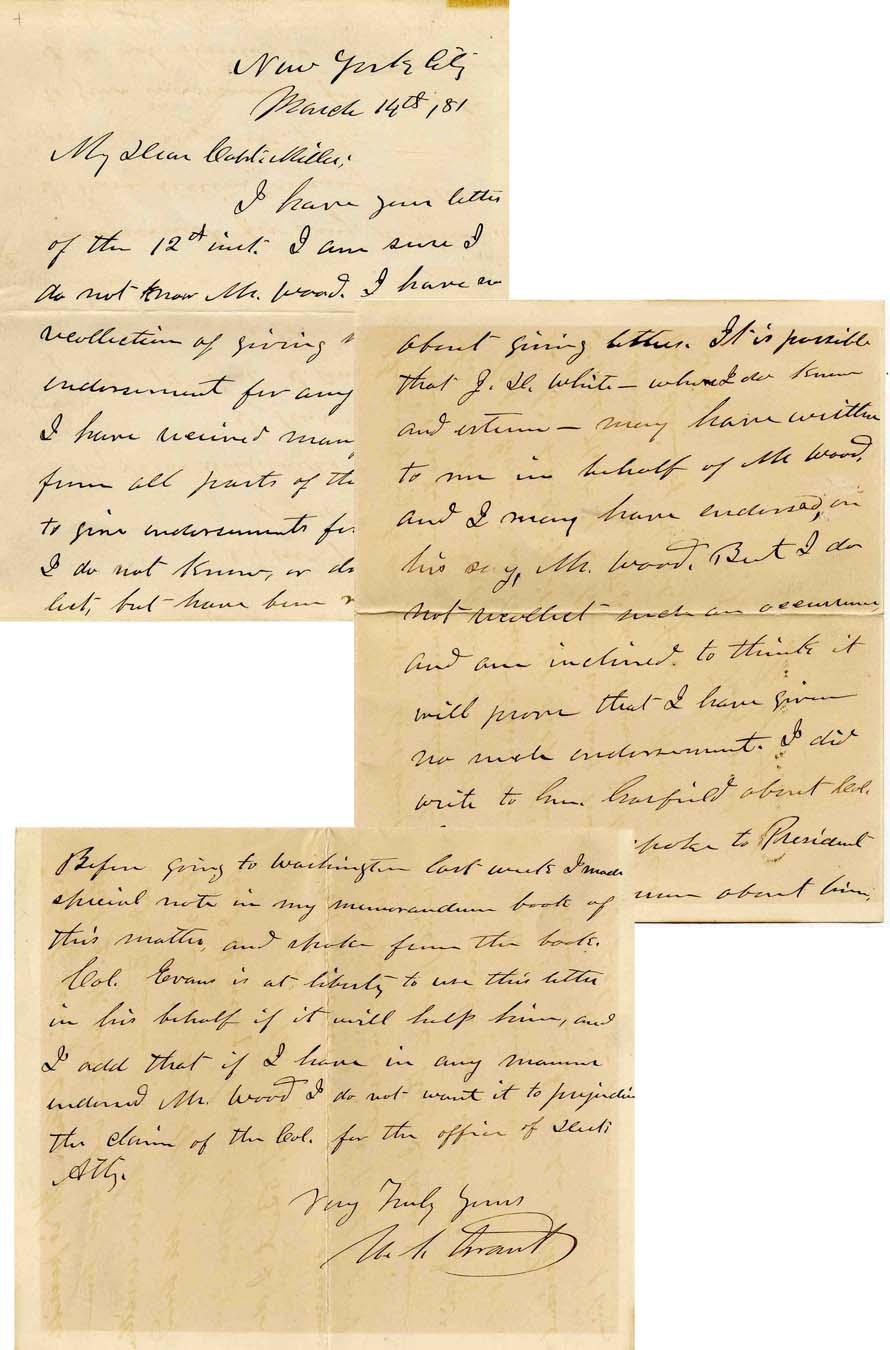 New York City
March 14th '81
My Dear Capt. Miller;
I have your letter
of the 12th inst. I am sure I
do not know Mr. Wood. I have no
recollection of giving
endorsement for any
I have received many
from all parts of the
to give endorsements for
I do not know, or do
but have been
about giving letters. It is possible
that J. D. White - whom I do know
and esteem - may have written
to me in behalf of Mr. Wood,
and I may have endorsed, on
his say, Mr. Wood. But I do
not recollect such an occurrence,
and am inclined to think it
will prove that I have given
no such endorsement. I did
write to Gen. Garfield about Col.
spoke to President
about him,
Before going to Washington last week I made
special note in my memorandum book of
this matter, and spoke from the book.
Col. Evans is at liberty to use this letter
in his behalf if it will help him, and
I add that if I have in any manner
endorsed Mr. Wood I do not want it to prejudice
the claim of the Col. for the office of Dist.
Atty.
Very Truly Yours
U. S. Grant